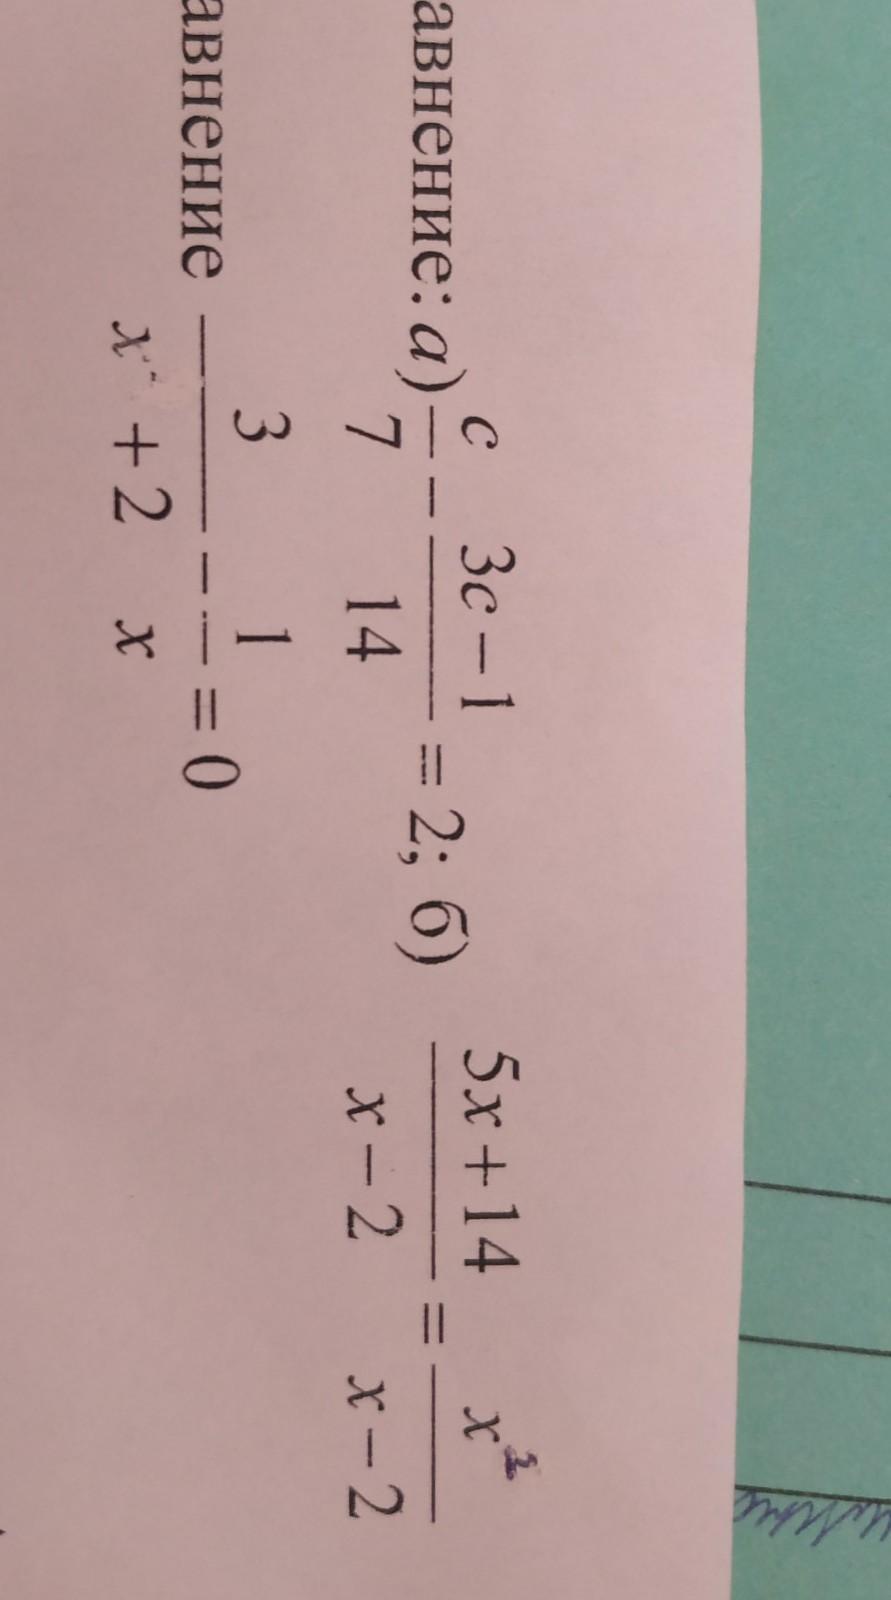 авнение: а) c/7 − (3c − 1)/14 = 2; б) (5x + 14)/(x − 2) = x²/(x − 2)
авнение 3/(x² + 2) − 1/x = 0